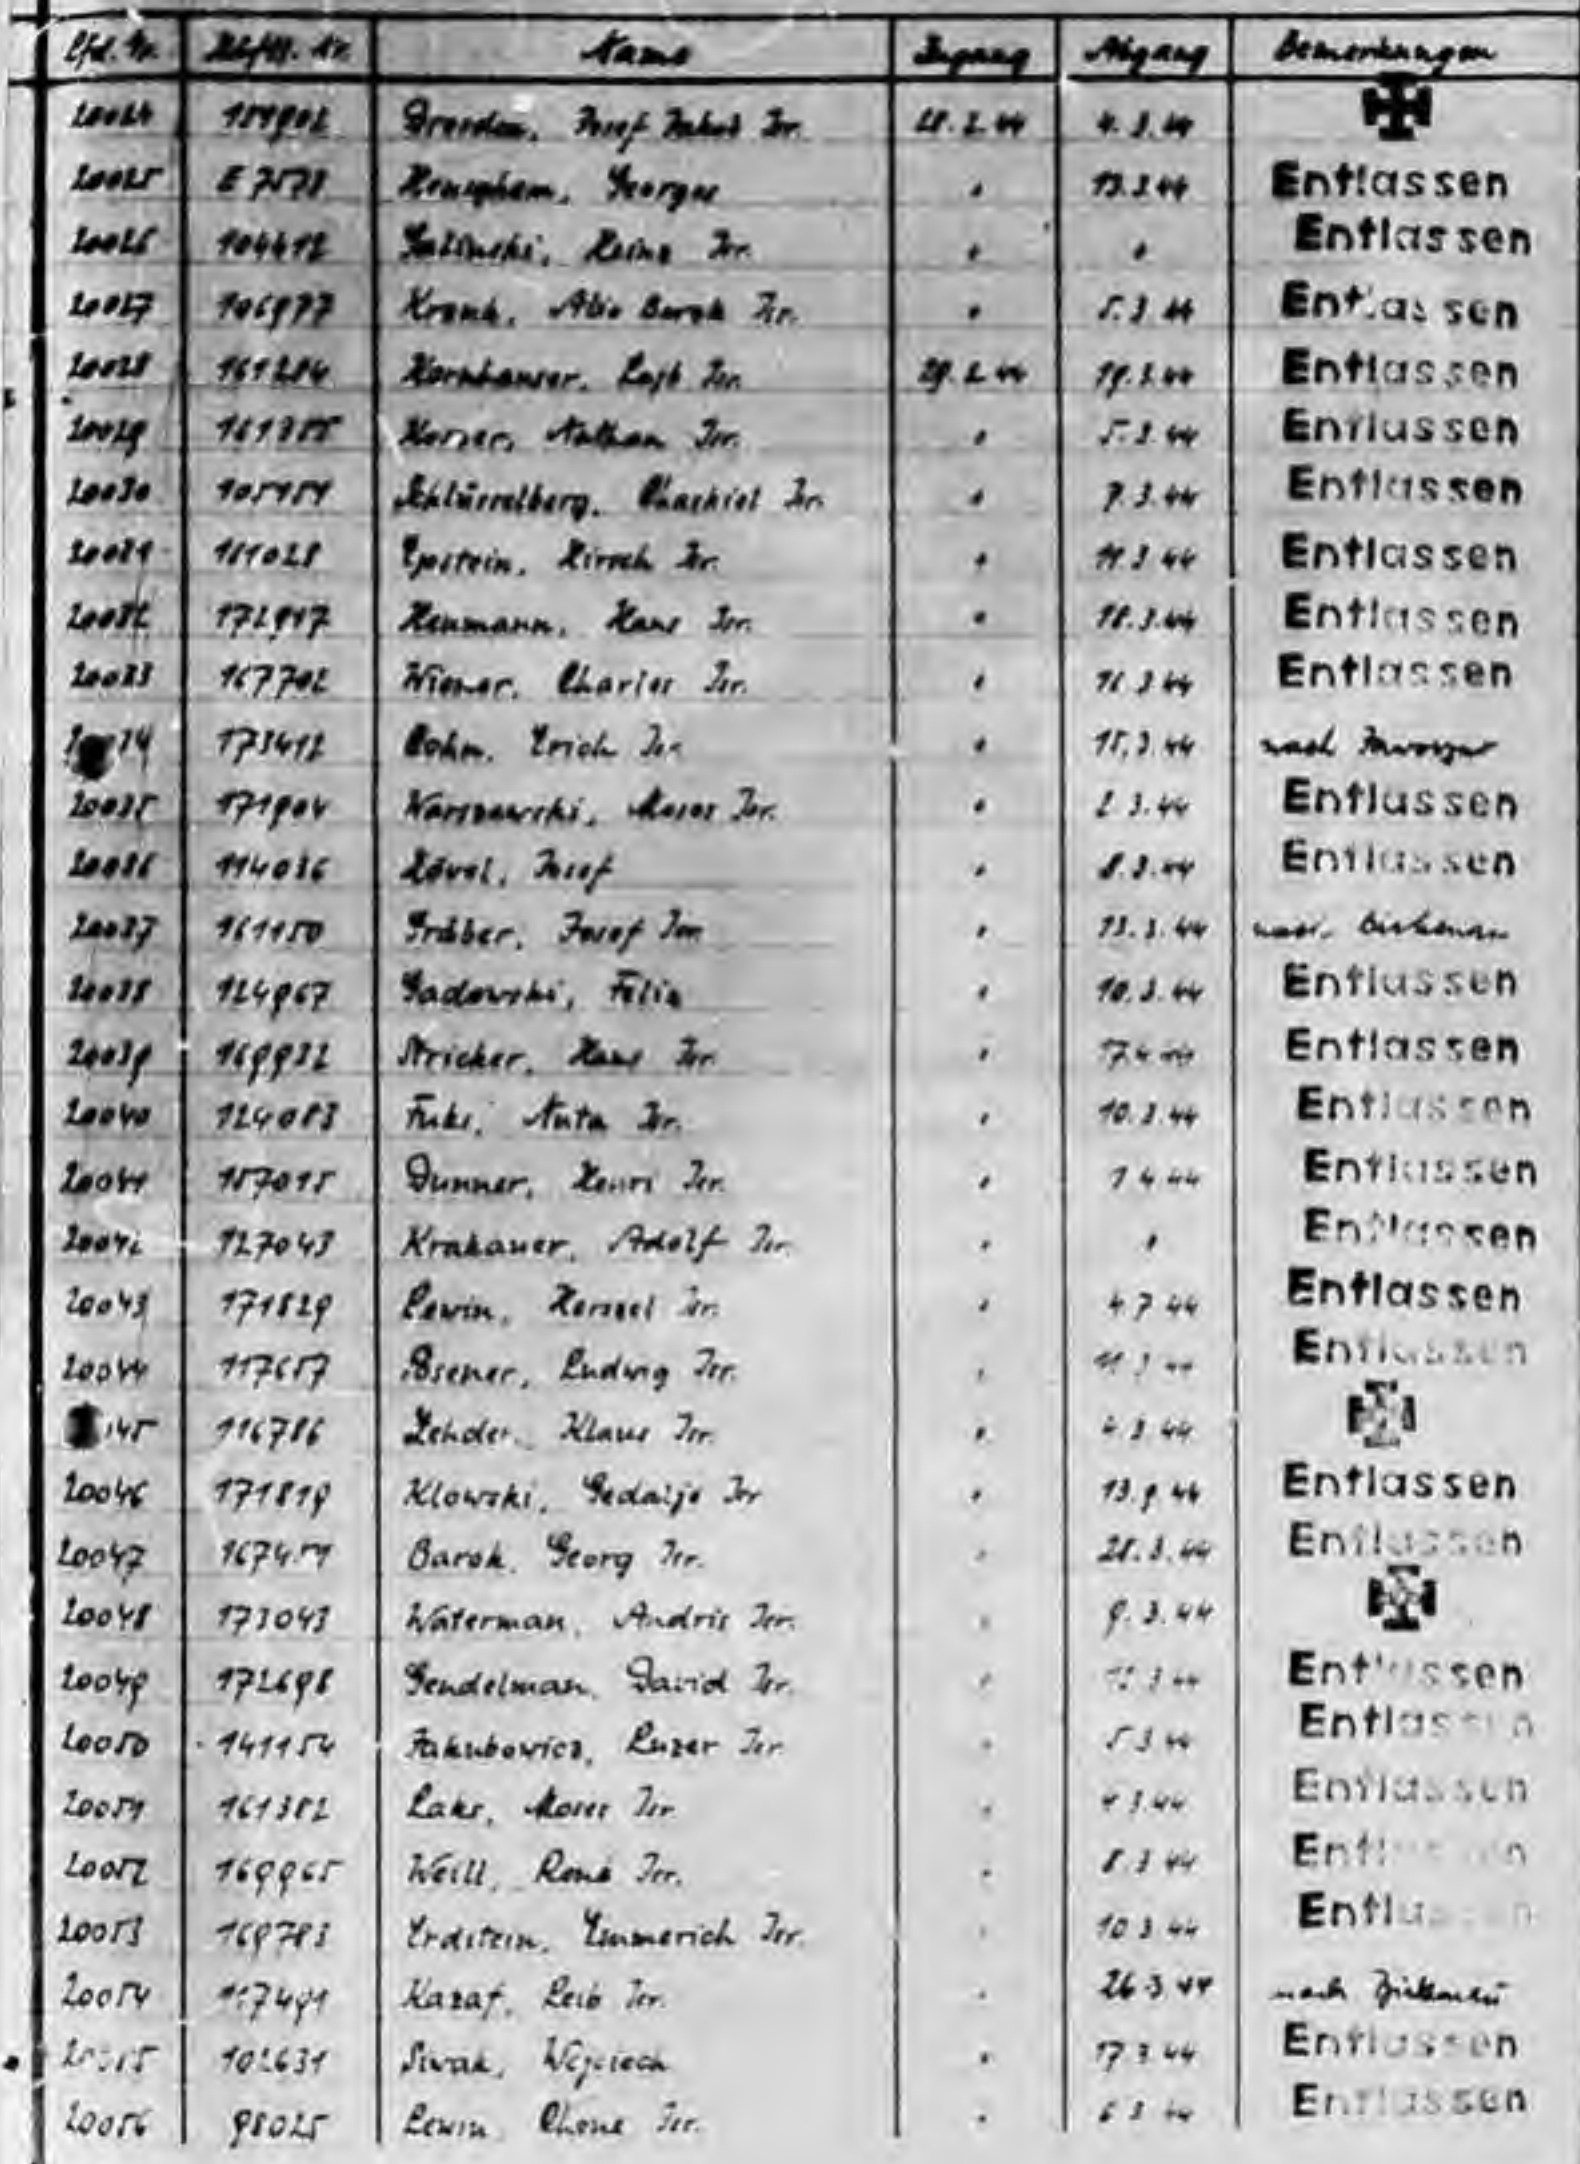 Lfd. Nr. Häftl. Nr. Name Zugang Abgang Bemerkungen
20024 Dresden, Josef Jakob Isr. 28.2.44 4.3.44
20025 E 7578 Georges " 13.3.44 Entlassen
20026 104412 Galinski, Heinz Isr. " " Entlassen
20027 106977 Isr. " 5.3.44 Entlassen
20028 161284 Kornhauser, Lajb Isr. 29.2.44 19.3.44 Entlassen
20029 Korzer, Nathan Isr. " 5.3.44 Entlassen
20030 Schlüsselberg, Chaskiel Isr. " 7.3.44 Entlassen
20031 161028 Epstein, Hirsch Isr. " 11.3.44 Entlassen
20032 172917 Heumann, Hans Isr. " 18.3.44 Entlassen
20033 167702 Wiener, Charles Isr. " 16.3.44 Entlassen
34 173412 Cohn, Erich Isr. " 15.3.44 nach
20035 171904 Warszawski, Moses Isr. " 2.3.44 Entlassen
20036 114036 Josef " 8.3.44 Entlassen
20037 161150 Gräber, Josef Isr. " 13.3.44 nach Birkenau
20038 124967 Sadowski, Felix " 10.3.44 Entlassen
20039 169932 Stricker, Hans Isr. " 17.4.44 Entlassen
20040 124083 Fuks, Nuta Isr. " 10.3.44 Entlassen
20041 157015 Dunner, Henri Isr. " 1.4.44 Entlassen
20042 127043 Krakauer, Adolf Isr. " " Entlassen
20043 171829 Lewin, Herszel Isr. " 4.7.44 Entlassen
20044 117657 Posener, Ludwig Isr. " 11.3.44 Entlassen
45 116786 Zehder, Klaus Isr. " 4.3.44
20046 171819 Klowski, Gedalje Isr. " 13.9.44 Entlassen
20047 Barok, Georg Isr. " 28.3.44 Entlassen
20048 173043 Waterman, Andris Isr. " 9.3.44
20049 172698 Gendelman, David Isr. " Entlassen
20050 141154 Jakubowicz, Luzer Isr. " 5.3.44 Entlassen
20051 161382 Laks, Moses Isr. " 4.3.44 Entlassen
20052 169965 Weill, René Isr. " 8.3.44 Entlassen
20053 169783 Erdstein, Emmerich Isr. " 10.3.44 Entlassen
20054 117491 Kazaf, Leib Isr. " 26.3.44 nach Birkenau
20055 102631 Siwak, Wojciech " 17.3.44 Entlassen
20056 98025 Lewin, Chone Isr. " 6.3.44 Entlassen